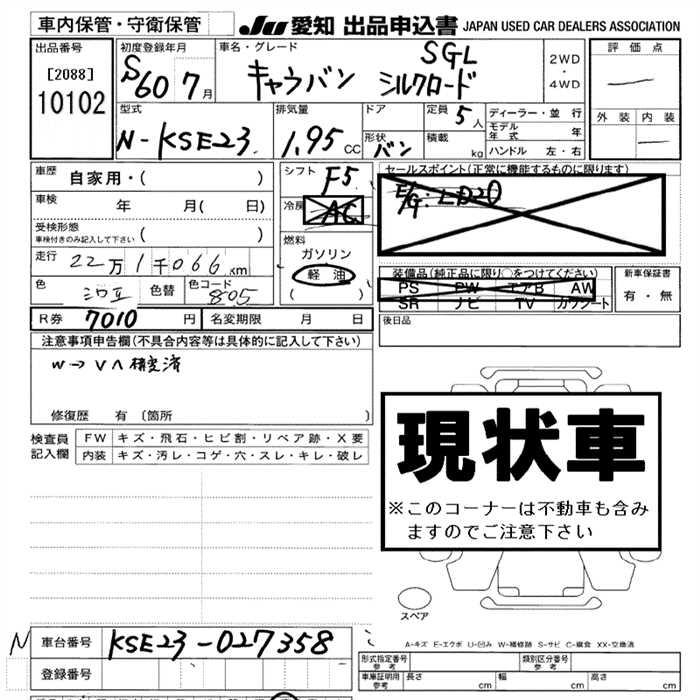 車内保管・守衛保管
JU 愛知 出品申込書 JAPAN USED CAR DEALERS ASSOCIATION
出品番号
[2088]
10102
初度登録年月
S60 7月
車名・グレード
キャラバン SGL シルクロード
2WD
・
4WD
評価点
外装 内装
型式
N-KSE23
排気量
1.95 CC
ドア
形状
バン
定員 5人
積載 kg
ディーラー・並行
モデル年式 年
ハンドル 左・右
車歴
自家用・( )
車検 年 月( 日)
受検形態
車検付きのみ記入して下さい ( )
走行 22万1千066km
色 シロ 色替 色コード 805
シフト F5
冷房 AC
燃料
ガソリン
軽油
( )
セールスポイント(正常に機能するものに限ります)
E/G:LD20
装備品(純正品に限り○をつけてください)
PS PW エアB AW
SR ナビ TV カワシート
新車保証書
有・無
R券 7010 円 名変期限 月 日
後日品
注意事項申告欄(不具合内容等は具体的に記入して下さい)
W→V
修復歴 有 (箇所 )
検査員記入欄
FW キズ・飛石・ヒビ割・リペア跡・X要
内装 キズ・汚レ・コゲ・穴・スレ・キレ・破レ
現状車
※このコーナーは不動車も含み
ますのでご注意下さい
スペア
A-キズ E-エクボ U-凹み W-補修跡 S-サビ C-腐食 XX-交換済
N 車台番号 KSE23-027358
登録番号
形式指定番号
参考
類別区分番号
参考
車庫証明用
参考
長さ cm 幅 cm 高さ cm